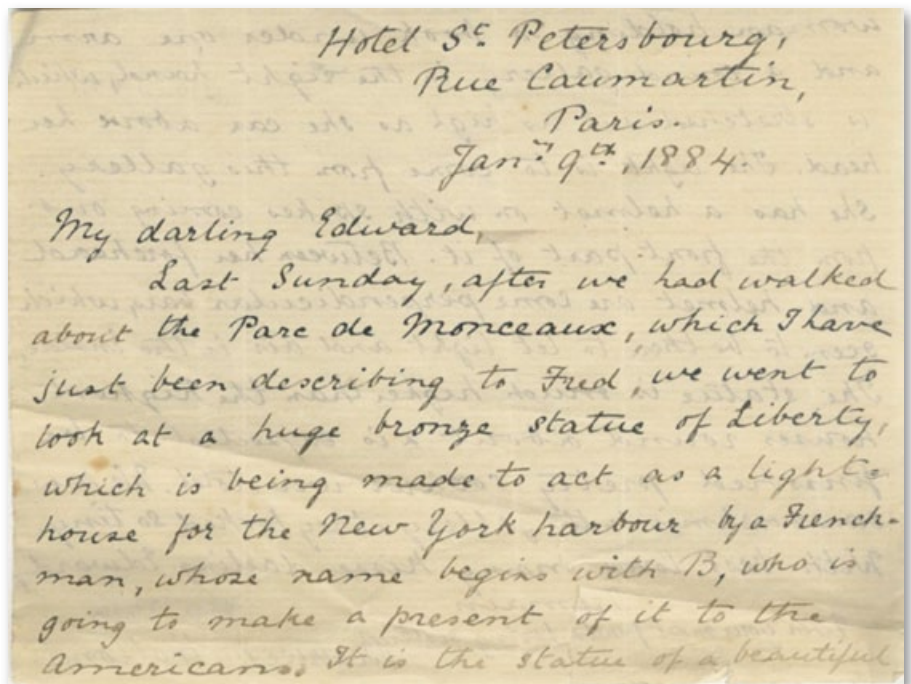 Hotel St. Petersbourg,
Rue Caumartin,
Paris.
Jany. 9th, 1884.
My darling Edward,
Last Sunday, after we had walked
about the Parc de Monceaux, which I have
just been describing to Fred, we went to
look at a huge bronze statue of Liberty,
which is being made to act as a light=
house for the New York harbour by a French-
man, whose name begins with B, who is
going to make a present of it to the
Americans. It is the statue of a beautiful